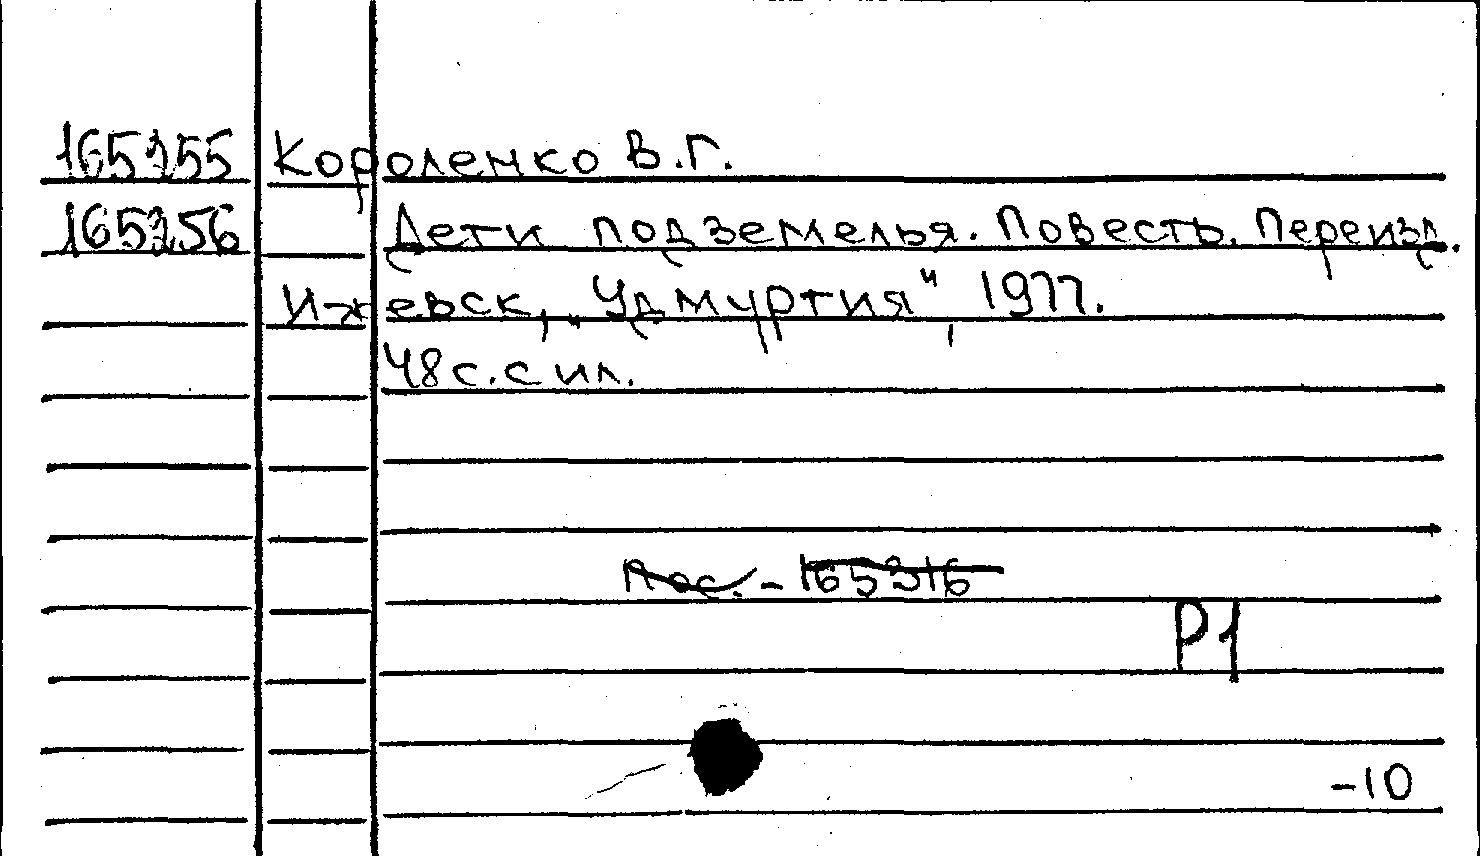 165255 Короленко В.Г.
165256 Дети подземелья. Повесть. Переизд.
Ижевск, „Удмуртия", 1977.
48 с. с ил.
Пос. - 165316
Р1
-10